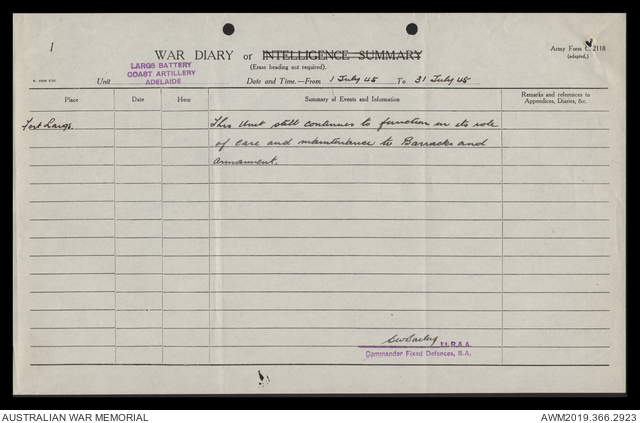 1
WAR DIARY or INTELLIGENCE SUMMARY
Army Form C. 2118
(adapted.)
(Erase heading not required).
Unit LARGS BATTERY
COAST ARTILLERY
ADELAIDE
Date and Time.—From 1 July 45 To 31 July 45
Place Date Hour Summary of Events and Information Remarks and references to
Appendices, Diaries, &c.
Fort Largs. This Unit still continues to function in its role
of care and maintenance to Barracks and
Armament.
Lt. R.A.A.
Commander Fixed Defences, S.A.
AUSTRALIAN WAR MEMORIAL AWM2019.366.2923